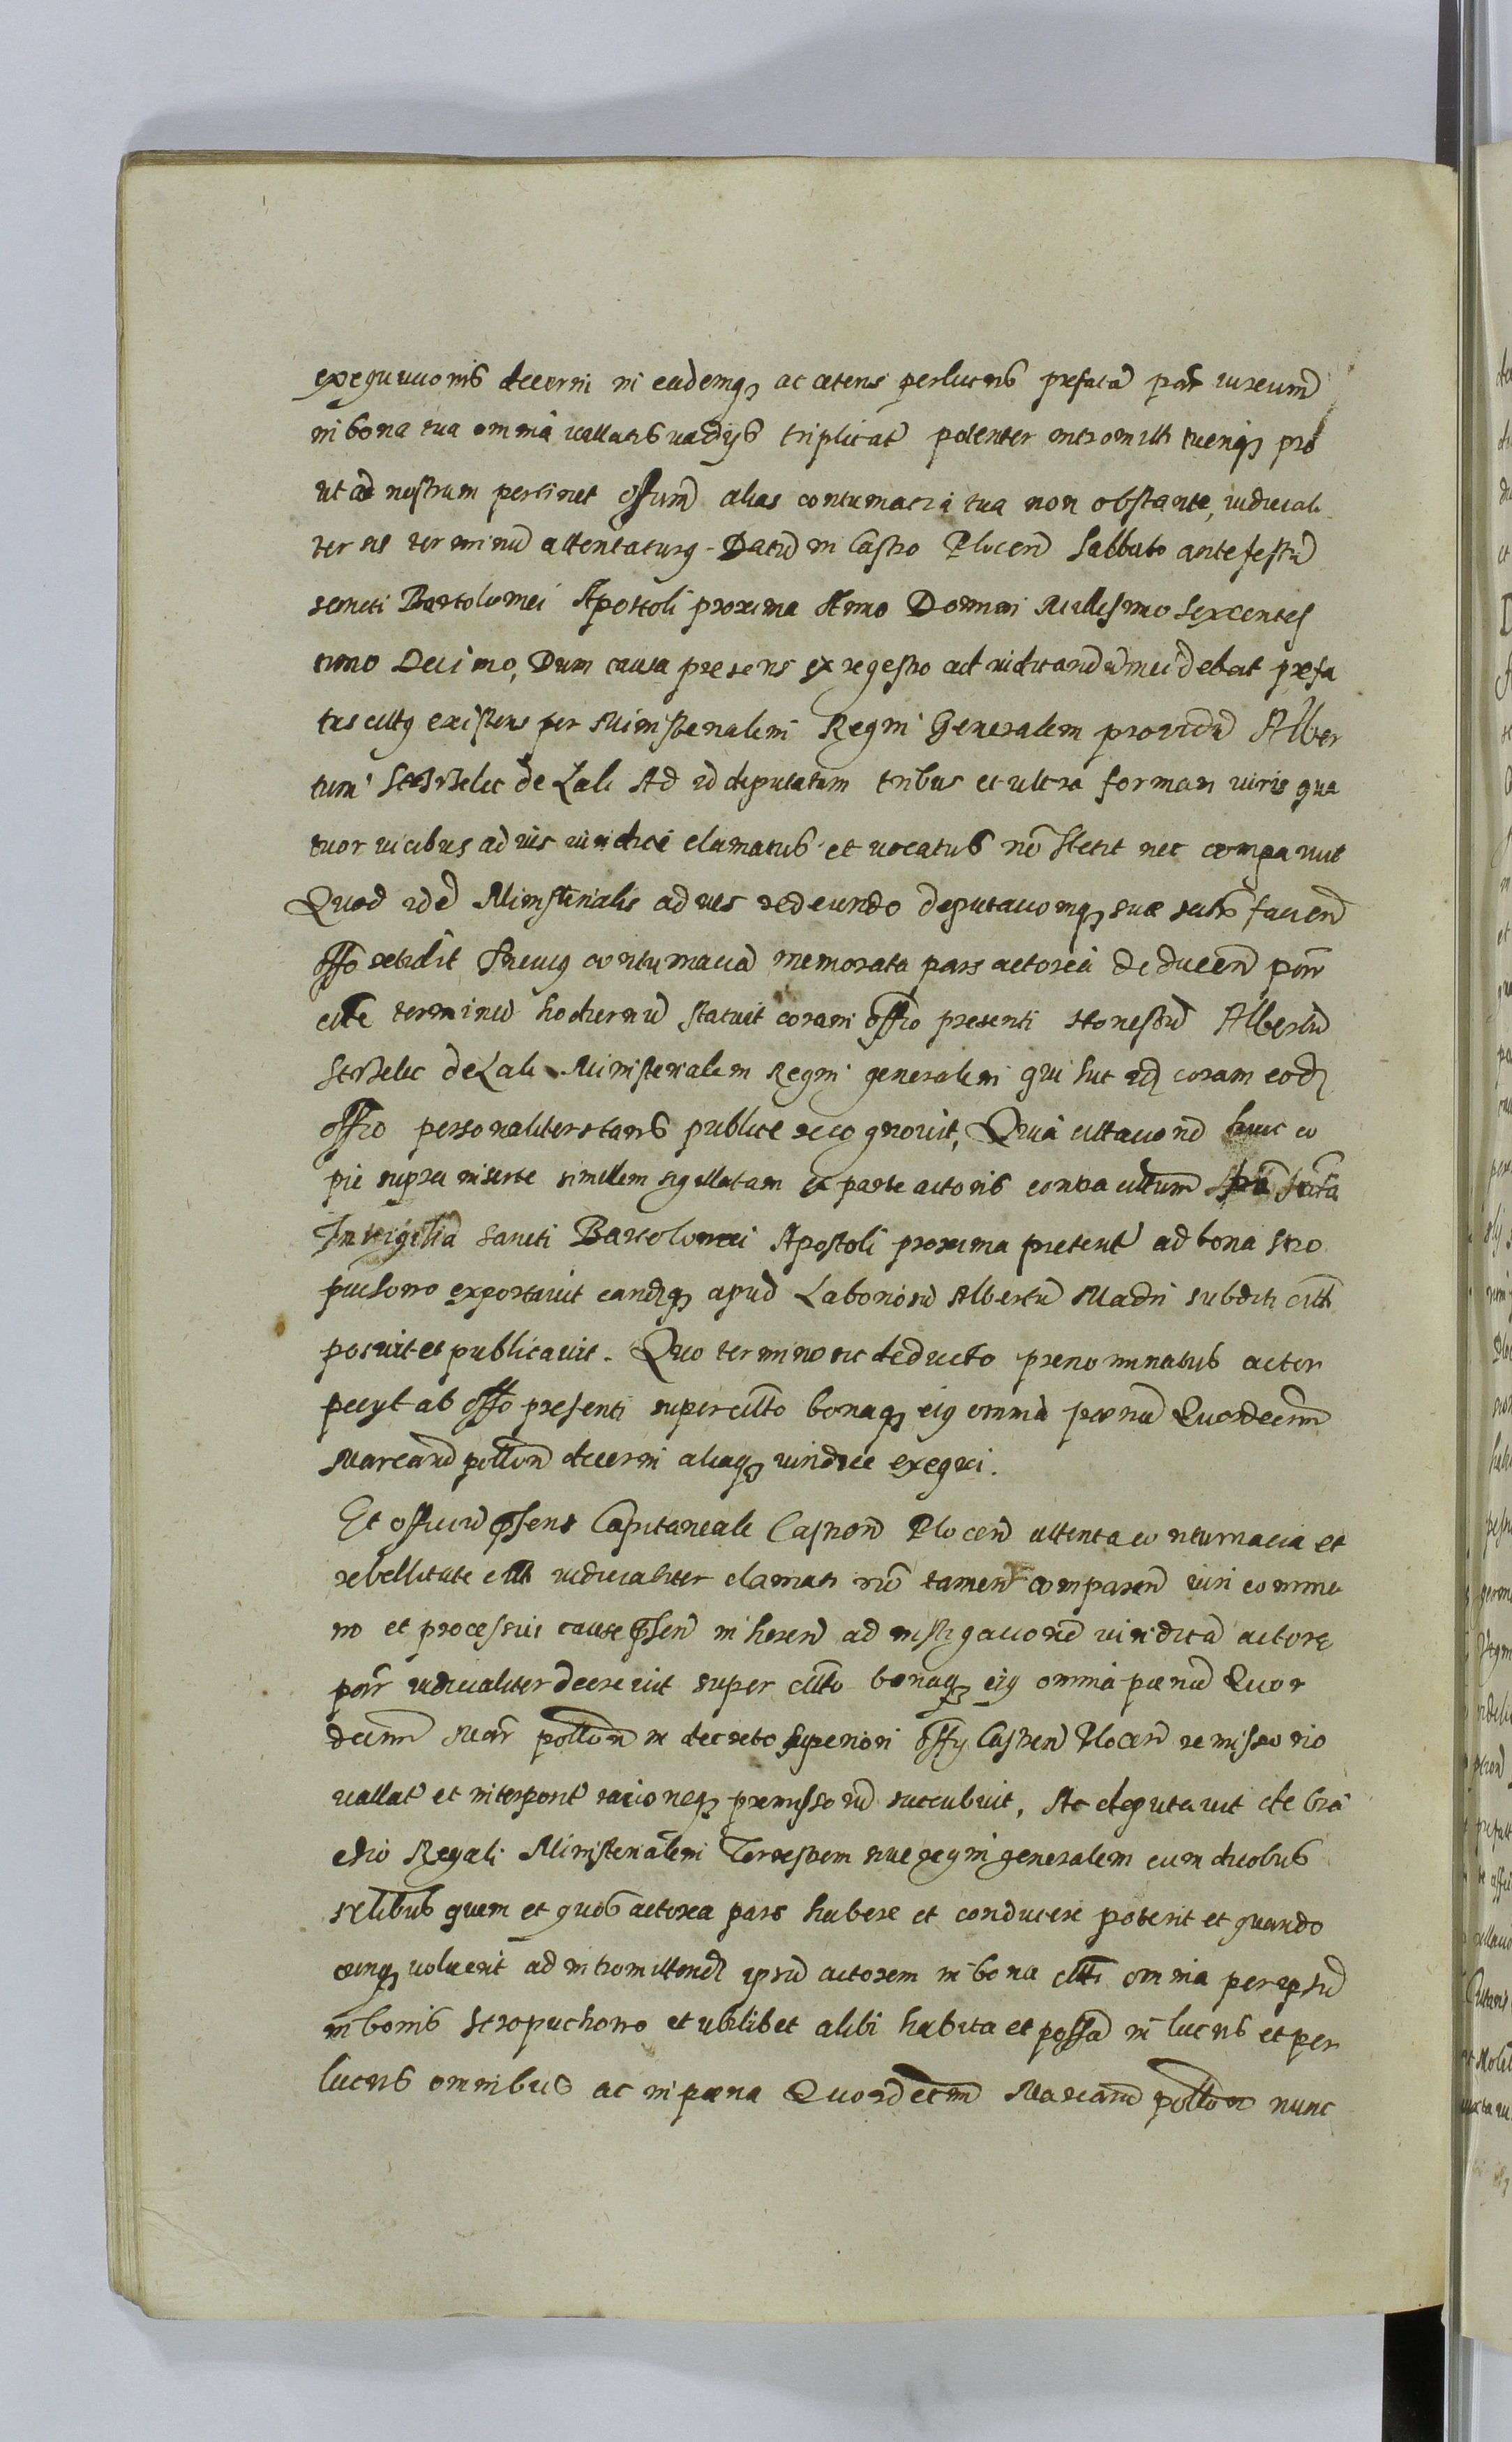 exequutionis decerni in eademq3 ac ceteris perlucris prefatā part iureum
in bona tua omnia vallatis vadijs triplicat potenter intromitti tueriq3 pro
ut ad nostrum pertinet offium alias contumacia tua non obstante, iudiciali
ter sis terminū attentaturus. Datū in Castro Plocen Sabbato ante festū
sancti Bartolomei Apostoli proxima Anno Domini Millesimo Sexcentes
timo Decimo, Dum causa presens ex regestro ad iudicandū incidebat prefa
tus cittus existens per Ministerialem Regni Generalem providū Alber
tum Strzelec de Lali Ad id deputatum tribus et ultra forman iuris qua
tuor vicibus ad iūs iuridice clamatus et vocatus nō stetit nec comparuit
Quod idē Ministerialis ad ves redeundo deputacioniq3 suæ satis facien
offo retulit In cuius contumaciā memorata pars actorea deducen part
citte terminū hodiernū statuit coram offio presenti Honestū Albertū
Strzelec de Lali Ministerialem Regni generalem qui hut id coram eod
offio personaliter stans publice recognovit, Quia cittacionē huic co
pie supra inserte similem sigillatam ex parte actoris contra cittum
In vigilia sancti Bartolomei Apostoli proxima preterit ad bona Stro
puchowo exportavit eandq3 apud Laboriosū Albertū Madri subditi citti
posuit et publicavit. Quo termino sic deducto prenominatus actor
pecyt ab offo presenti super citto bonaq3 eius omnia pœnā Quordecim
Marcarū pollon decerni aliaq3 iuridice exequi.
Et officiū psens Capitaneale Castren Plocen attenta contumacia et
rebellitate citti iudicialiter clamati nō tamen comparen iuri commu
no et processui cause psen inheren ad instigacionē iuridicā actore
part iudicialiter decrevit super citto bonaq3 eius omnia pœnā Quor
decim Mar pollon in decreto superiori offy Castren Plocen remissorio
vallat et interposit racioneq3 premissorū succubuit, Ac deputavit de bra
chio Regali Ministerialem Terrestrem sive regni generalem cum duobus
nlibus quem et quos actorea pars habere et conducere poterit et quando
cunq3 voluerit ad intromittendū ipsū actorem in bona citti omnia per ipsū
in bonis Stropuchowo et ubilibet alibi habita et possā in lucris et per
lucris omnibus ac in pœna Quordecim Marcarū pollon nunc